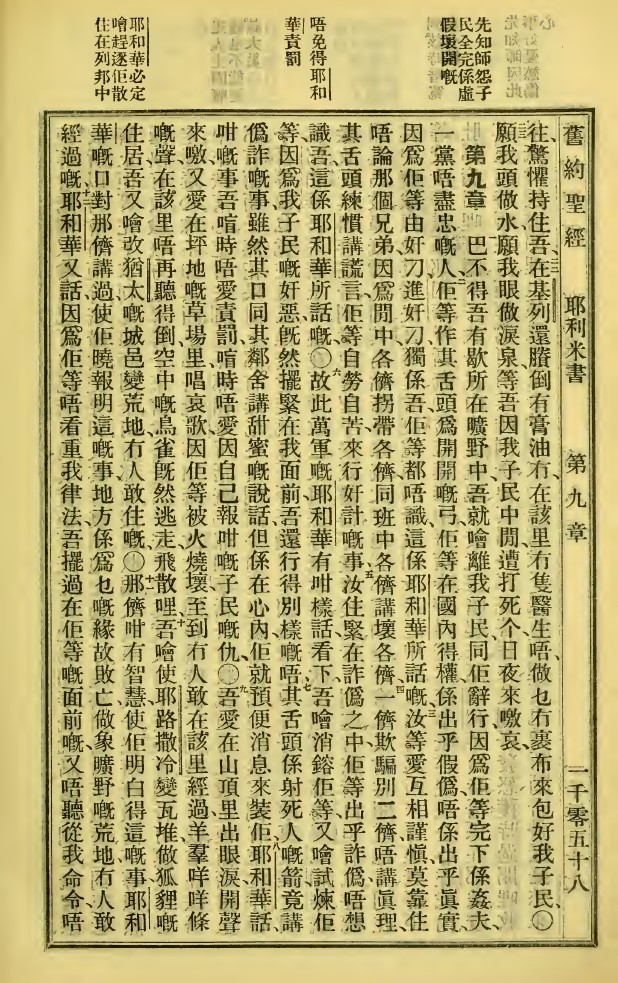 舊約聖經　耶利米書　第九章　一千零五十八
先知師怨子
民全完係虛
假壞開嘅
唔免得耶和
華責罰
耶和華必定
噲趕逐佢散
住在列邦中
往、驚懼持住吾、在基列還賸倒有膏油冇、在該里冇隻醫生唔、做乜冇裹布來包好我子民、〇
願我頭做水、願我眼做淚泉、等吾因我子民中間遭打死个日夜來噭哀、
第九章　巴不得吾有歇所在曠野中、吾就噲離我子民同佢辭行、因爲佢等完下係姦夫、
一黨唔盡忠嘅人、佢等作其舌頭爲開開嘅弓、佢等在國內得權係出乎假僞、唔係出乎眞實、
因爲佢等由奸刁進奸刁、獨係吾佢等都唔識、這係耶和華所話嘅、汝等愛互相謹愼、莫靠住
唔論那個兄弟、因爲間中各儕拐帶各儕、同班中各儕講壞各儕、一儕欺騙別二儕、唔講眞理、
其舌頭練慣講謊言、佢等自勞自苦來行奸計嘅事、汝住緊在詐僞之中、佢等出乎詐僞唔想
識吾、這係耶和華所話嘅、〇故此萬軍嘅耶和華有咁樣話、看下、吾噲消鎔佢等、又噲試煉佢
等、因爲我子民嘅奸惡、旣然擺緊在我面前、吾還行得別樣嘅唔、其舌頭係射死人嘅箭、竟講
僞詐嘅事、雖然其口同其鄰舍講甜蜜嘅說話、但係在心內佢就預便消息來裝佢、耶和華話、
咁嘅事吾喑時唔愛責罰、喑時唔愛因自己報咁嘅子民嘅仇、〇吾愛在山頂里出眼淚開聲
來噭、又愛在坪地嘅草場里唱哀歌、因佢等被火燒壞、至到冇人敢在該里經過、羊羣咩咩條
嘅聲、在該里唔再聽得倒、空中嘅鳥雀旣然逃走飛散哩、吾噲使耶路撒冷變瓦堆、做狐狸嘅
住居、吾又噲改猶太嘅城邑變荒地、冇人敢住嘅、〇那儕咁有智慧、使佢明白得這嘅事、耶和
華嘅口對那儕講過、使佢曉報明這嘅事、地方係爲乜嘅緣故敗亡、做象曠野嘅荒地、冇人敢
經過嘅、耶和華又話、因爲佢等唔看重我律法、吾擺過在佢等嘅面前嘅、又唔聽從我命令、唔